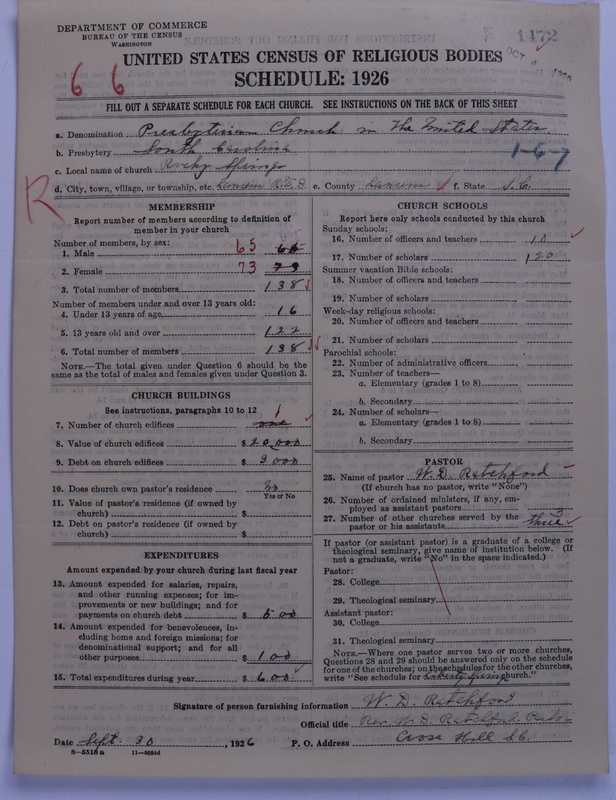 DEPARTMENT OF COMMERCE
BUREAU OF THE CENSUS
WASHINGTON
1472
OCT
UNITED STATES CENSUS OF RELIGIOUS BODIES
SCHEDULE: 1926
6 6
FILL OUT A SEPARATE SCHEDULE FOR EACH CHURCH. SEE INSTRUCTIONS ON THE BACK OF THIS SHEET
a. Denomination Presbyterian Church in The United States
b. Presbytery South Carolina
1-6-7
c. Local name of church Rocky Springs
R
d. City, town, village, or township, etc. R.F.D e. County Laurens f. State S.C.
MEMBERSHIP
Report number of members according to definition of
member in your church
Number of members, by sex:
1. Male 65 65
2. Female 73 73
3. Total number of members 138
Number of members under and over 13 years old:
4. Under 13 years of age 16
5. 13 years old and over 122
6. Total number of members 138
NOTE.—The total given under Question 6 should be
same as the total of males and females given under Question 3.
CHURCH BUILDINGS
See instructions, paragraphs 10 to 12
7. Number of church edifices one 1
8. Value of church edifices $20,000
9. Debt on church edifices $3000
10. Does church own pastor's residence No
Yes or No
11. Value of pastor's residence (if owned by
church) $
12. Debt on pastor's residence (if owned by
church) $
EXPENDITURES
Amount expended by your church during last fiscal year
13. Amount expended for salaries, repairs,
and other running expenses; for im-
provements or new buildings; and for
payments on church debt $500
14. Amount expended for benevolences, in-
cluding home and foreign missions; for
denominational support; and for all
other purposes $100
15. Total expenditures during year $600
CHURCH SCHOOLS
Report here only schools conducted by this church
Sunday schools:
16. Number of officers and teachers 10
17. Number of scholars 120
Summer vacation Bible schools:
18. Number of officers and teachers
19. Number of scholars
Week-day religious schools:
20. Number of officers and teachers
21. Number of scholars
Parochial schools:
22. Number of administrative officers
23. Number of teachers—
a. Elementary (grades 1 to 8)
b. Secondary
24. Number of scholars—
a. Elementary (grades 1 to 8)
b. Secondary
PASTOR
25. Name of pastor W. D. Ratchford
(If church has no pastor, write "None")
26. Number of ordained ministers, if any, em-
ployed as assistant pastors
27. Number of other churches served by the
pastor or his assistants three 3
If pastor (or assistant pastor) is a graduate of a college or
theological seminary, give name of institution below. (If
not a graduate, write "No" in the space indicated.)
Pastor:
28. College
29. Theological seminary
Assistant pastor:
30. College
31. Theological seminary
NOTE.—Where one pastor serves two or more churches,
Questions 28 and 29 should be answered only on the schedule
for one of the churches; on the schedules for the other churches,
write "See schedule for church."
Signature of person furnishing information W. D. Ratchford
Official title Rev. W. D. Ratchford Pastor
Date Sept 30, 1926 P. O. Address Cross Hill S.C.
8—5518 a 11—90544